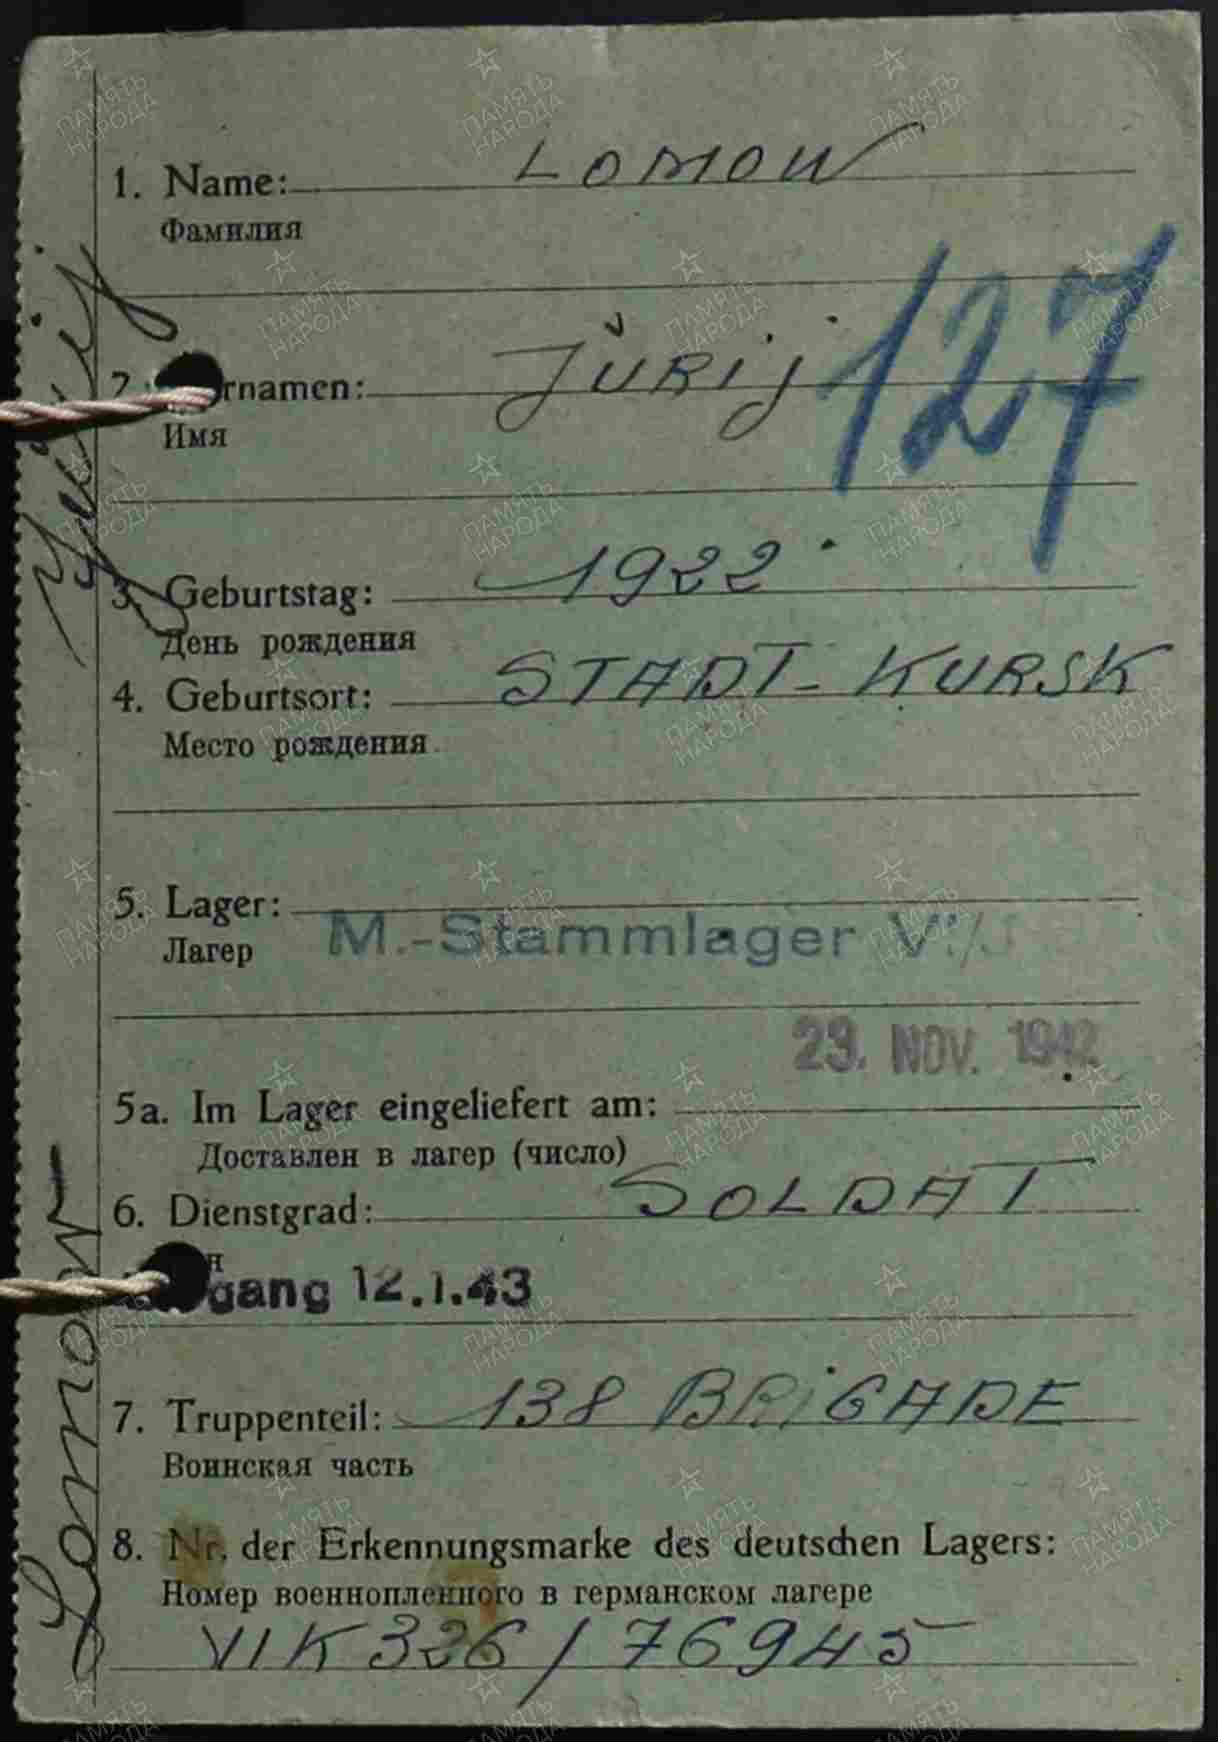 1. Name: LOMOW
Фамилия
127
rnamen: JŭRij
Имя
3. Geburtstag: 1922
День рождения
4. Geburtsort: STADT-KURSK
Место рождения
5. Lager:
Лагер M.-Stammlager
29. NOV. 1942
5a. Im Lager eingeliefert am:
Доставлен в лагер (число)
6. Dienstgrad: SOLDAT
gang 12.1.43
7. Truppenteil: 138 BRiGADE
Воинская часть
8. Nr. der Erkennungsmarke des deutschen Lagers:
Номер военнопленного в германском лагере
VIK 326 / 76945
Lomow Jurij
ПАМЯТЬ НАРОДА